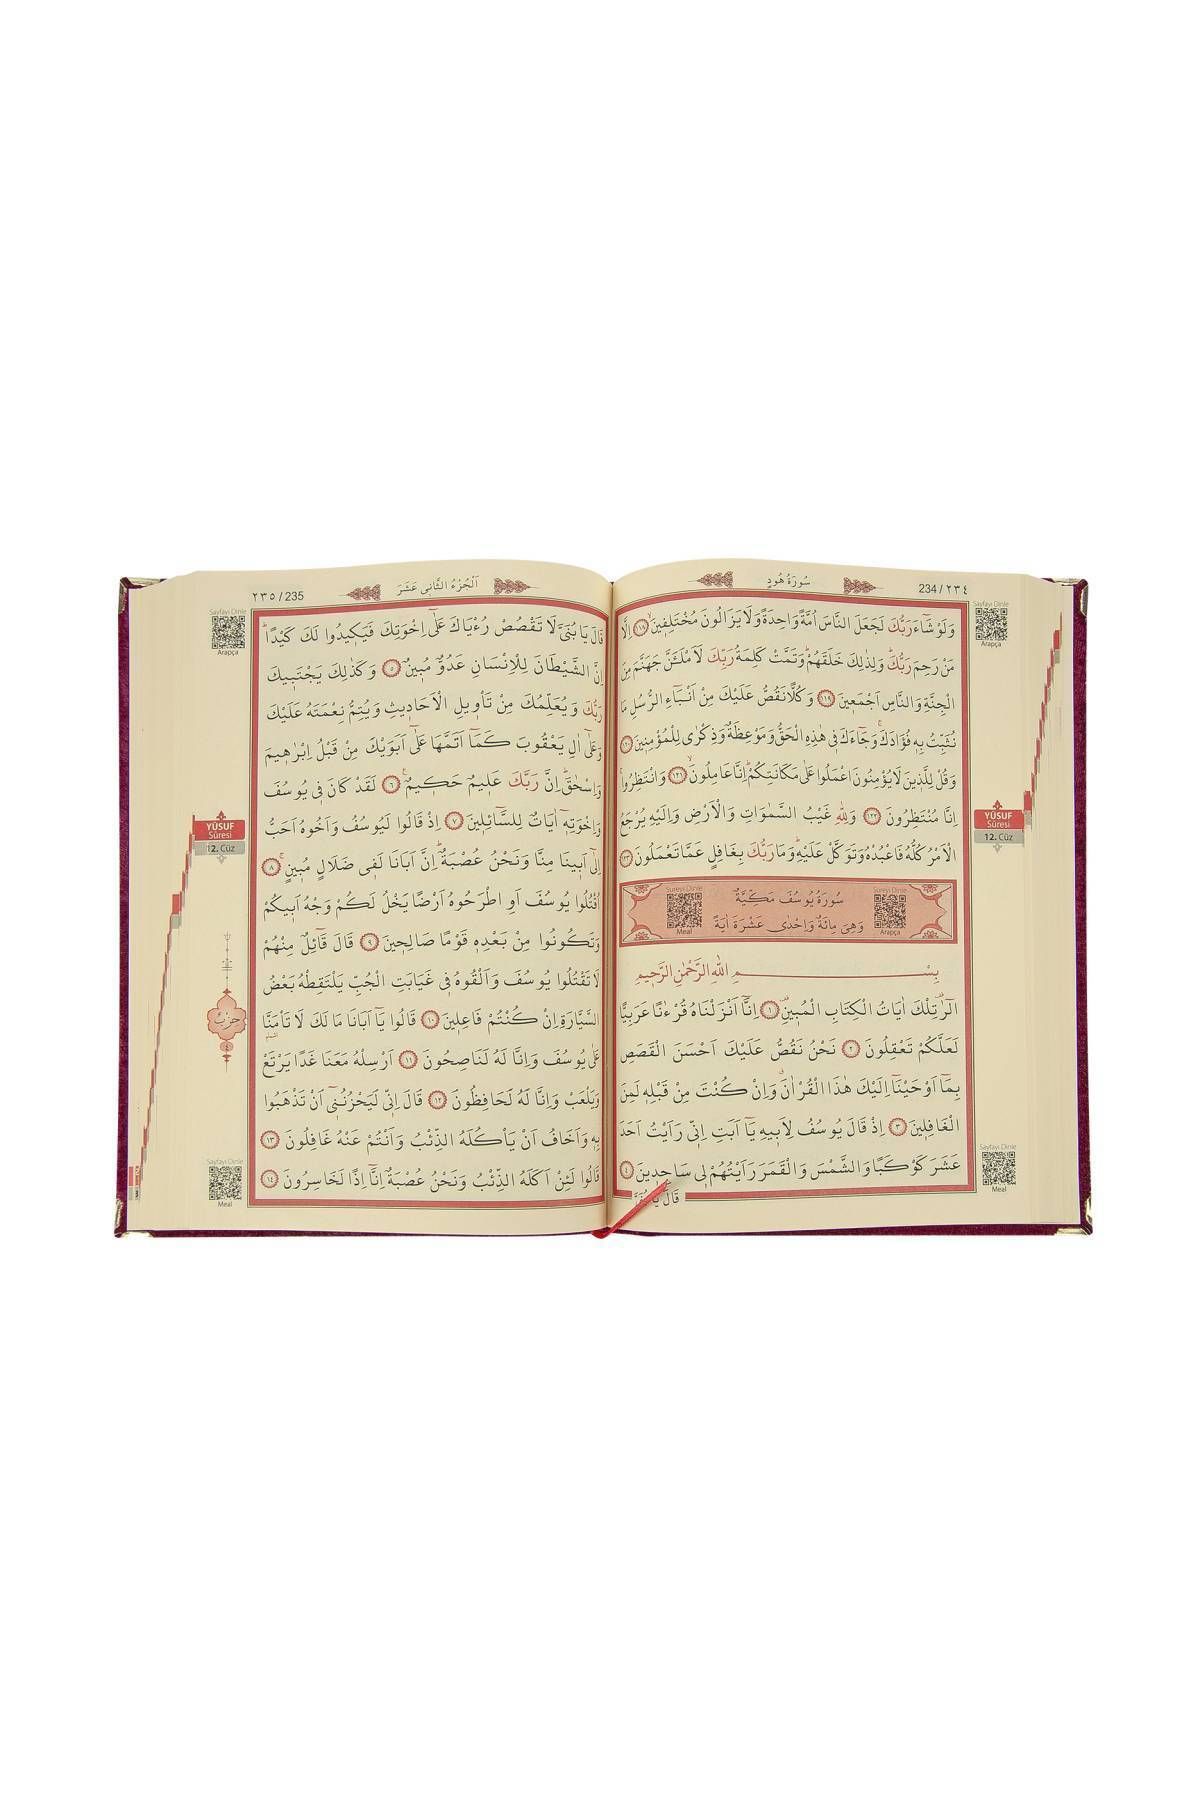 234 / ٢٣٤
سُورَةُ هُودٍ
وَلَوْ شَٓاءَ رَبُّكَ لَجَعَلَ النَّاسَ اُمَّةً وَاحِدَةً وَلَا يَزَالُونَ مُخْتَلِف۪ينَۙ ﴿١١٨﴾ اِلَّا
مَنْ رَحِمَ رَبُّكَۜ وَلِذٰلِكَ خَلَقَهُمْۜ وَتَمَّتْ كَلِمَةُ رَبِّكَ لَاَمْلَـَٔنَّ جَهَنَّمَ مِنَ
الْجِنَّةِ وَالنَّاسِ اَجْمَع۪ينَ ﴿١١٩﴾ وَكُلًّا نَقُصُّ عَلَيْكَ مِنْ اَنْبَٓاءِ الرُّسُلِ مَا
نُثَبِّتُ بِه۪ فُؤٰادَكَۚ وَجَٓاءَكَ ف۪ي هٰذِهِ الْحَقُّ وَمَوْعِظَةٌ وَذِكْرٰى لِلْمُؤْمِن۪ينَ ﴿١٢٠﴾
وَقُلْ لِلَّذ۪ينَ لَا يُؤْمِنُونَ اعْمَلُوا عَلٰى مَكَانَتِكُمْۜ اِنَّا عَامِلُونَۙ ﴿١٢١﴾ وَانْتَظِرُواۚ
اِنَّا مُنْتَظِرُونَ ﴿١٢٢﴾ وَلِلّٰهِ غَيْبُ السَّمٰوَاتِ وَالْاَرْضِ وَاِلَيْهِ يُرْجَعُ
الْاَمْرُ كُلُّهُ فَاعْبُدْهُ وَتَوَكَّلْ عَلَيْهِۜ وَمَا رَبُّكَ بِغَافِلٍ عَمَّا تَعْمَلُونَ ﴿١٢٣﴾
سُورَةُ يُوسُفَ مَكِّيَّةٌ
وَهِيَ مِائَةٌ وَاِحْدٰى عَشْرَةَ اٰيَةً
Sureyi Dinle
Arapça
Sureyi Dinle
Meal
بِسْمِ اللّٰهِ الرَّحْمٰنِ الرَّح۪يمِ
الٓرٰ۠ تِلْكَ اٰيَاتُ الْكِتَابِ الْمُب۪ينِ۠ ﴿١﴾ اِنَّٓا اَنْزَلْنَاهُ قُرْءٰنًا عَرَبِيًّا
لَعَلَّكُمْ تَعْقِلُونَ ﴿٢﴾ نَحْنُ نَقُصُّ عَلَيْكَ اَحْسَنَ الْقَصَصِ
بِمَٓا اَوْحَيْنَٓا اِلَيْكَ هٰذَا الْقُرْاٰنَۗ وَاِنْ كُنْتَ مِنْ قَبْلِه۪ لَمِنَ
الْغَافِل۪ينَ ﴿٣﴾ اِذْ قَالَ يُوسُفُ لِاَب۪يهِ يَٓا اَبَتِ اِنّ۪ي رَاَيْتُ اَحَدَ
عَشَرَ كَوْكَبًا وَالشَّمْسَ وَالْقَمَرَ رَاَيْتُهُمْ ل۪ي سَاجِد۪ينَ ﴿٤﴾
Sayfayı Dinle
Arapça
YÛSUF
Sûresi
12. Cüz
Sayfayı Dinle
Meal
٢٣٥ / 235
اَلْجُزْءُ الثَّانِي عَشَرَ
قَالَ يَا بُنَيَّ لَا تَقْصُصْ رُءْيَاكَ عَلٰٓى اِخْوَتِكَ فَيَك۪يدُوا لَكَ كَيْدًاۜ
اِنَّ الشَّيْطَانَ لِلْاِنْسَانِ عَدُوٌّ مُب۪ينٌ ﴿٥﴾ وَكَذٰلِكَ يَجْتَب۪يكَ
رَبُّكَ وَيُعَلِّمُكَ مِنْ تَأْو۪يلِ الْاَحَاد۪يثِ وَيُتِمُّ نِعْمَتَهُ عَلَيْكَ
وَعَلٰٓى اٰلِ يَعْقُوبَ كَمَٓا اَتَمَّهَا عَلٰٓى اَبَوَيْكَ مِنْ قَبْلُ اِبْرٰه۪يمَ
وَاِسْحٰقَۜ اِنَّ رَبَّكَ عَل۪يمٌ حَك۪يمٌ۟ ﴿٦﴾ لَقَدْ كَانَ ف۪ي يُوسُفَ
وَاِخْوَتِه۪ٓ اٰيَاتٌ لِلسَّٓائِل۪ينَ ﴿٧﴾ اِذْ قَالُوا لَيُوسُفُ وَاَخُوهُ اَحَبُّ
اِلٰٓى اَب۪ينَا مِنَّا وَنَحْنُ عُصْبَةٌۜ اِنَّ اَبَانَا لَف۪ي ضَلَالٍ مُب۪ينٍۚ ﴿٨﴾
اُقْتُلُوا يُوسُفَ اَوِ اطْرَحُوهُ اَرْضًا يَخْلُ لَكُمْ وَجْهُ اَب۪يكُمْ
وَتَكُونُوا مِنْ بَعْدِه۪ قَوْمًا صَالِح۪ينَ ﴿٩﴾ قَالَ قَٓائِلٌ مِنْهُمْ
لَا تَقْتُلُوا يُوسُفَ وَاَلْقُوهُ ف۪ي غَيَابَتِ الْجُبِّ يَلْتَقِطْهُ بَعْضُ
السَّيَّارَةِ اِنْ كُنْتُمْ فَاعِل۪ينَ ﴿١٠﴾ قَالُوا يَٓا اَبَانَا مَا لَكَ لَا تَأْمَنَّا
عَلٰى يُوسُفَ وَاِنَّا لَهُ لَنَاصِحُونَ ﴿١١﴾ اَرْسِلْهُ مَعَنَا غَدًا يَرْتَعْ
وَيَلْعَبْ وَاِنَّا لَهُ لَحَافِظُونَ ﴿١٢﴾ قَالَ اِنّ۪ي لَيَحْزُنُن۪ٓي اَنْ تَذْهَبُوا
بِه۪ وَاَخَافُ اَنْ يَأْكُلَهُ الذِّئْبُ وَاَنْتُمْ عَنْهُ غَافِلُونَ ﴿١٣﴾
قَالُوا لَئِنْ اَكَلَهُ الذِّئْبُ وَنَحْنُ عُصْبَةٌ اِنَّٓا اِذًا لَخَاسِرُونَ ﴿١٤﴾
Sayfayı Dinle
Arapça
YÛSUF
Sûresi
12. Cüz
حِزْبٌ
٤
Sayfayı Dinle
Meal